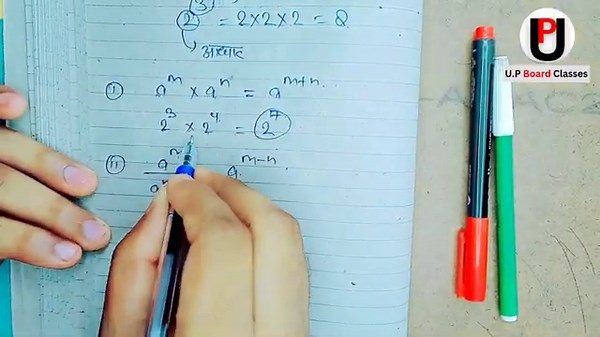 2³ = 2×2×2 = 8
आधार
(i) aᵐ × aⁿ = aᵐ⁺ⁿ
2³ × 2⁴ = 2⁷
(ii) aᵐ aᵐ⁻ⁿ
UP
U.P Board Classes